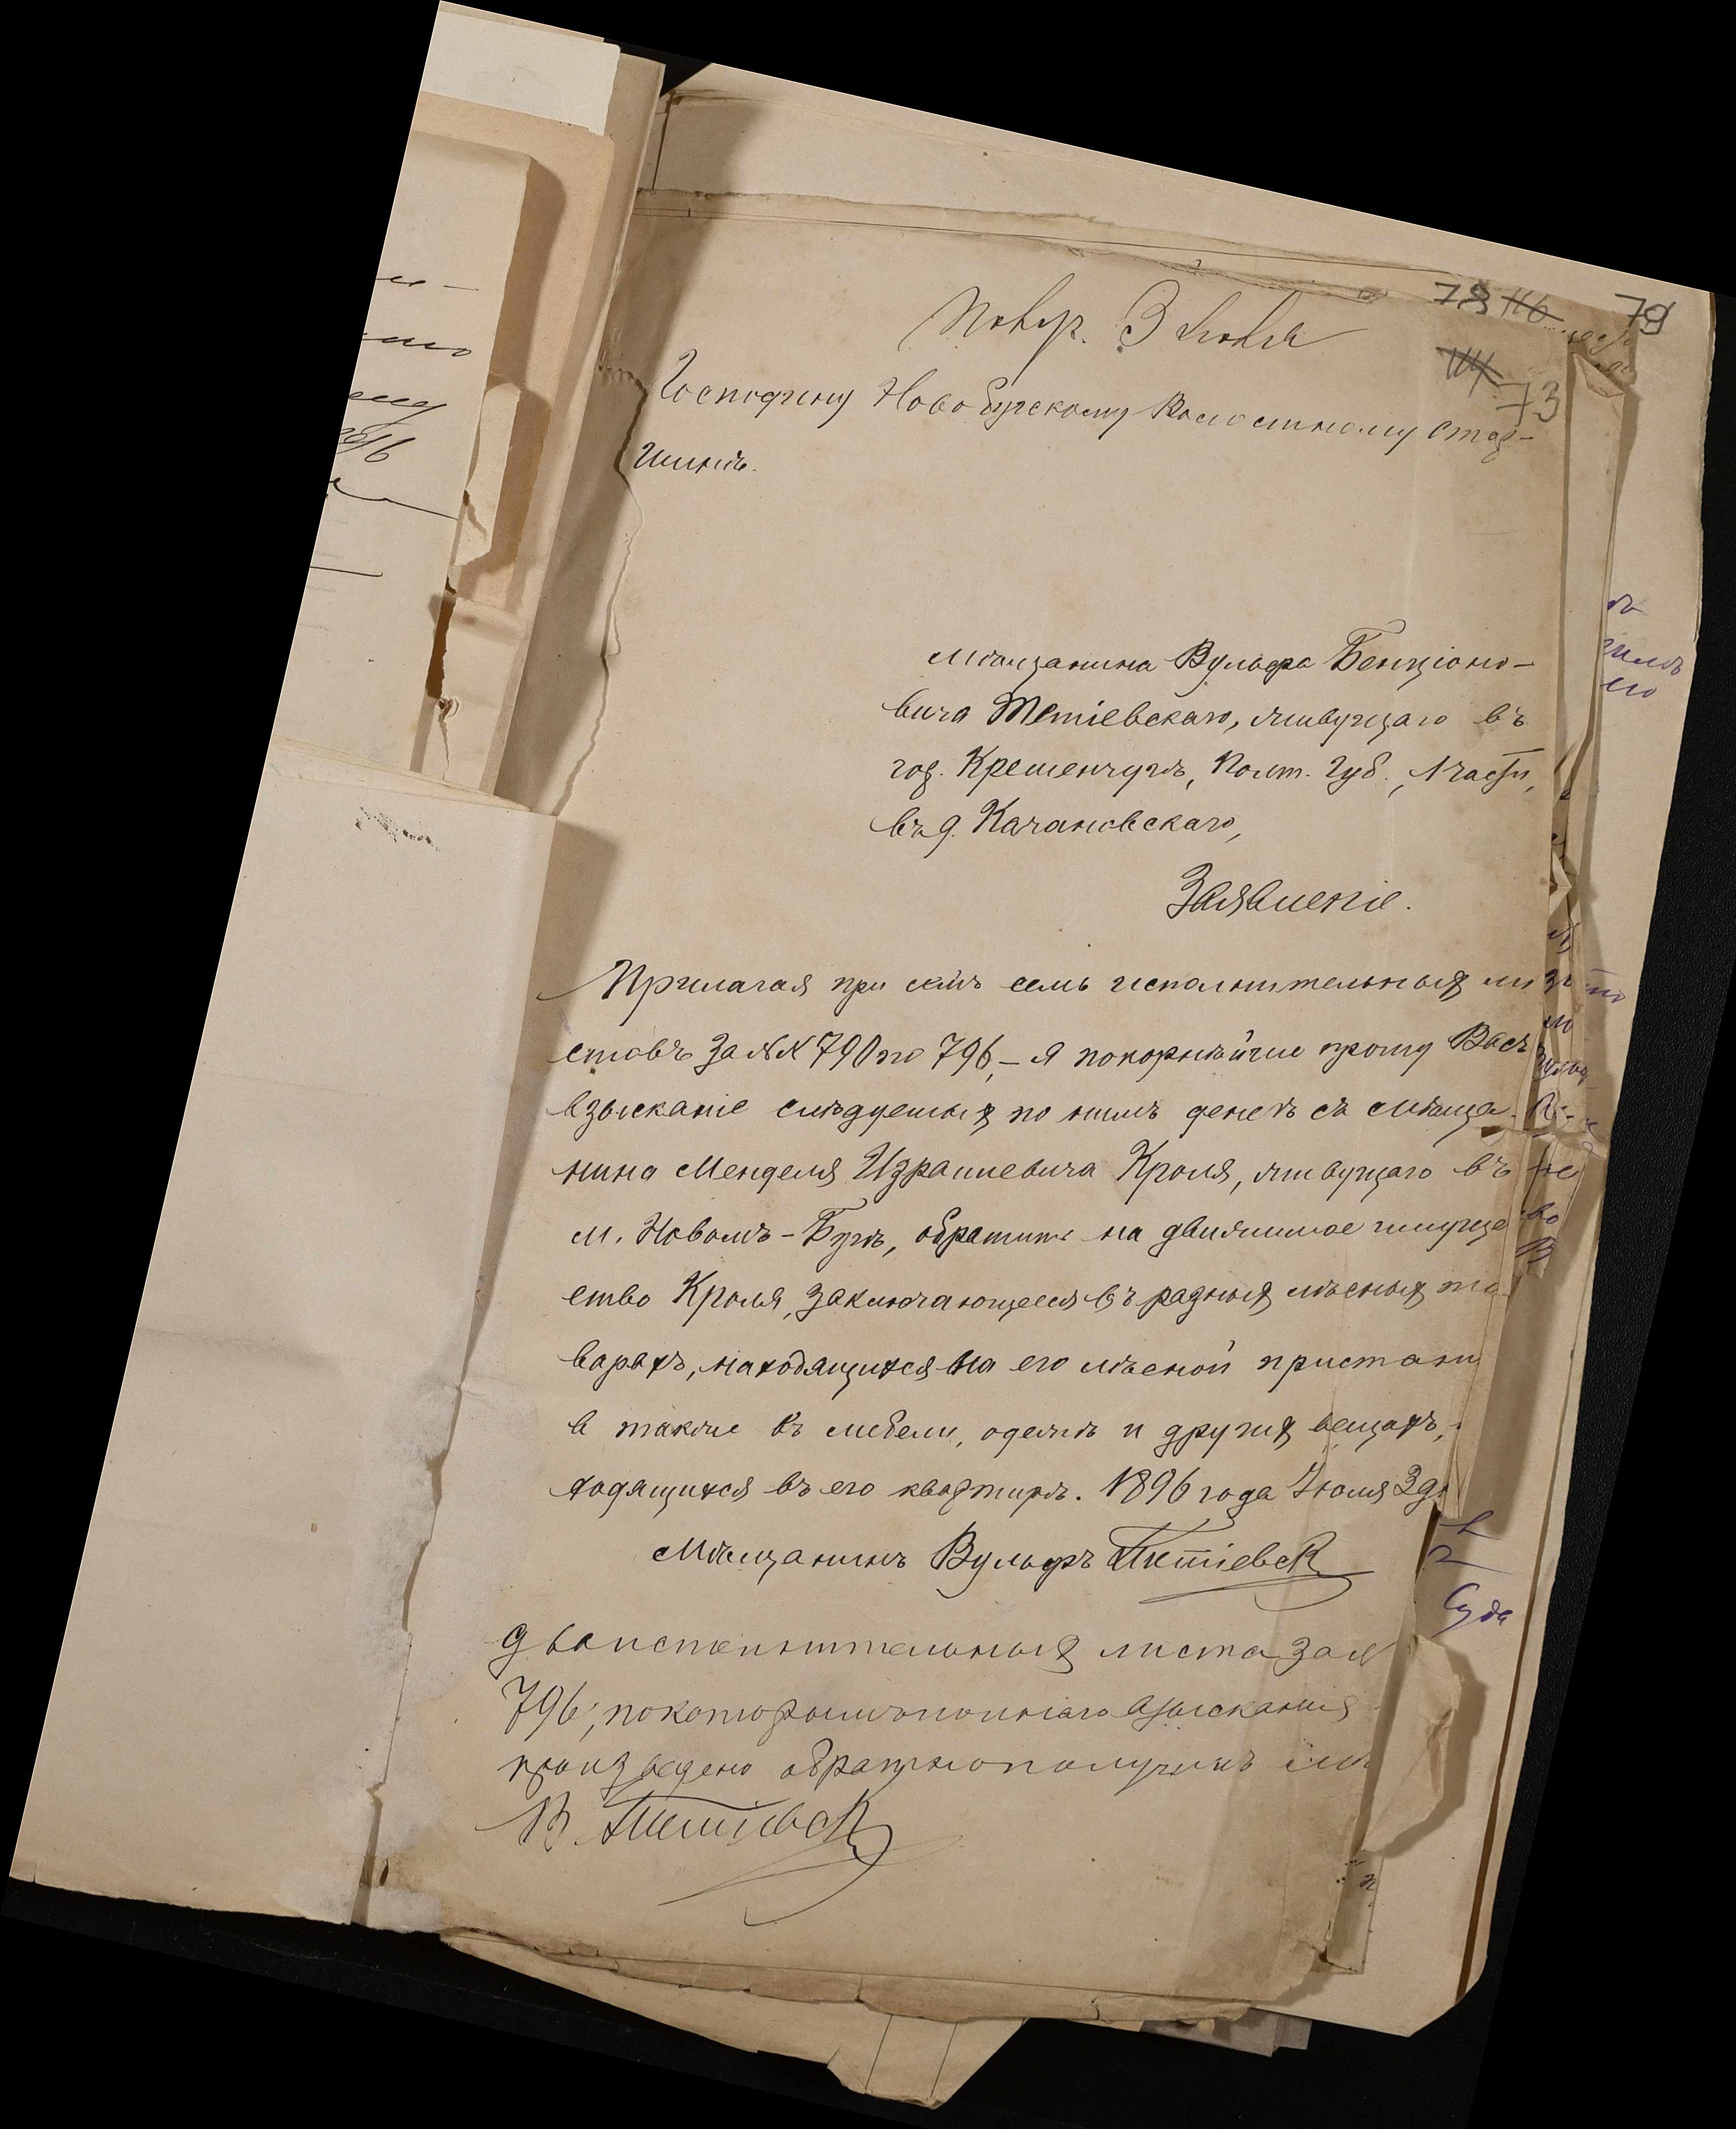 78 116 79
114 73
Господину Новобугскому Волостному Стар-
шинѣ.
Мѣщанина Вульфа Бенціоно-
вича Тетіевскаго, живущаго въ
гор. Кременчугѣ, Полт. Губ., 1 части,
въ д. Качановскаго,
Заявленіе.
Прилагая при семъ семь исполнительныхъ ли
стовъ за №№ 790 по 796, – я покорнѣйше прошу Васъ
взысканіе слѣдуемыхъ по нимъ денегъ съ мѣща-
нина Менделя Израилевича Кроля, живущаго въ
м. Новомъ-Бугѣ, обратить на движимое имуще
ство Кроля, заключающееся въ разныхъ лѣсныхъ то
варахъ, находящихся на его лѣсной пристани
а также въ мебели, одеждѣ и другихъ вещахъ,
ходящихся въ его квартирѣ. 1896 года Іюля 3 д.
Мѣщанинъ Вульфъ Тетіевск
Два исполнительныхъ листа за №
796, по которымъ полнаго взысканія
произведено обратно получилъ
В. Тетіевск
Суда